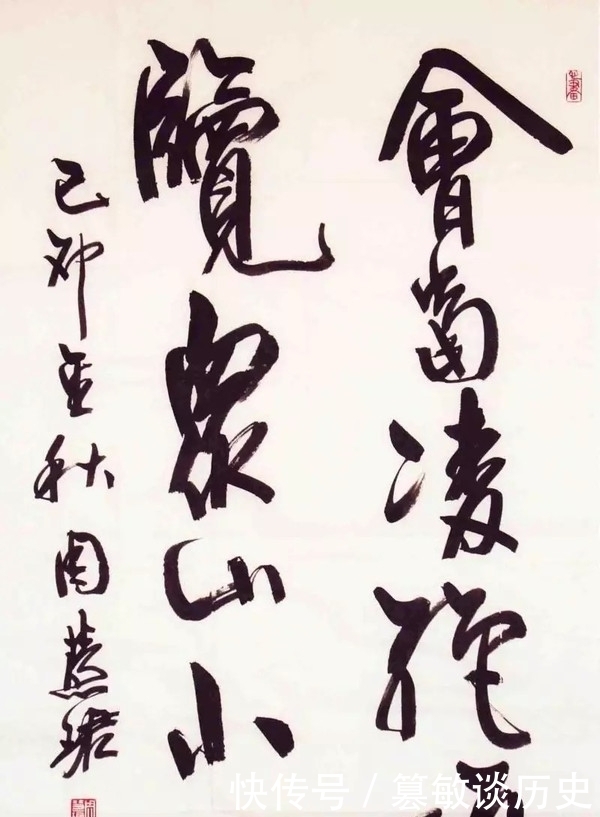 會當凌絕
覽眾山小
己卯金秋周慧珺
快传号 / 篡敏谈历史